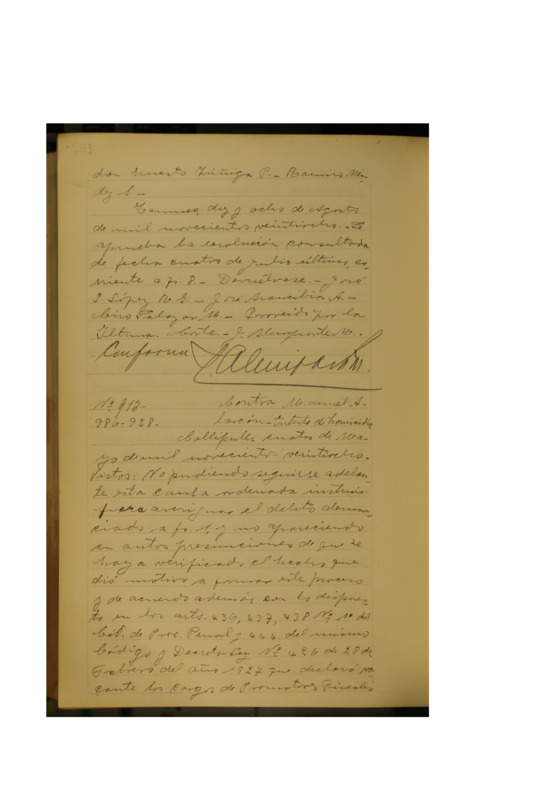 don Ernesto Zúñiga P. – Ramiro Mén-
dez S. –
Temuco, diez y ocho de Agosto
de mil novecientos veintiocho. – Se
aprueba la resolución consultada
de fecha cuatro de julio último, es-
crita a fs. 8. – Devuélvase. – José
S. López R. – José Arancibia A. –
Salazar M. – Proveído por la
Iltma. Corte. – J. Alemparte M. –
Conforme
Nº 913. Contra Manuel A-
986-928. larcón – Intento de homicidio
Collipulli cuatro de Ma-
yo de mil novecientos veintiocho.
Vistos: No pudiendo seguirse adelan-
te esta causa ordenada instruir
para averiguar el delito denun-
ciado a fs. 1 y no apareciendo
en autos presunciones de que se
haya verificado el hecho que
dió motivo a formar este proceso
y de acuerdo además con lo dispues-
to en los arts. 436, 437, 438 Nº 1º del
Cód. de Proc. Penal y 444 del mismo
Código y Decreto Ley Nº 426 de 28 de
Febrero del año 1927 que declaró va-
cante los cargos de Promotores Fiscales